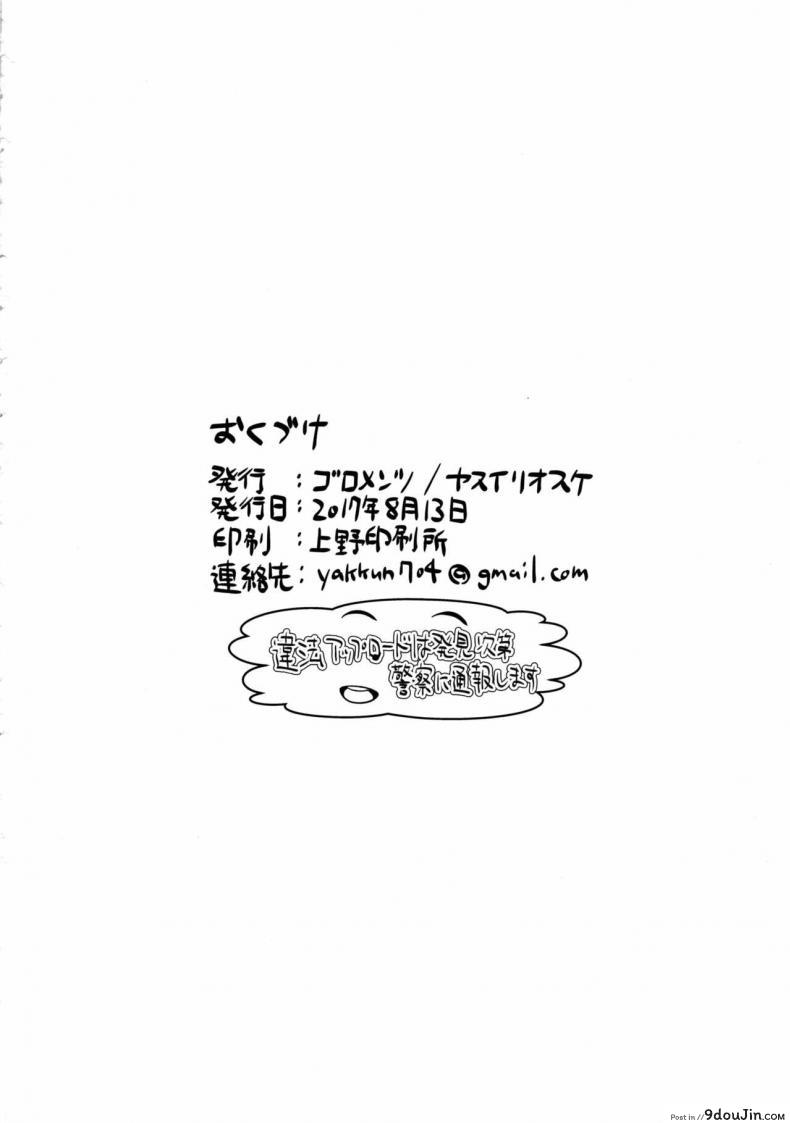 おくづけ
発行　：ゴロメンツ/ヤスイリオスケ
発行日：2017年8月13日
印刷　：上野印刷所
連絡先：yakkun704@gmail.com
違法アップロードは発見次第
警察に通報します
Post in // 9douJin.COM